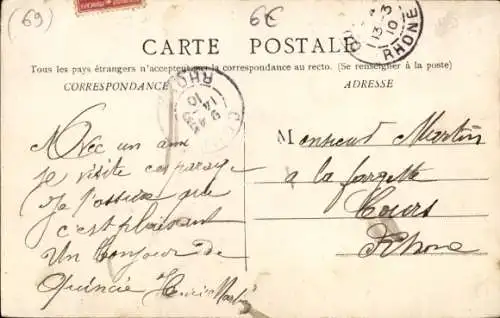 (69)
6€
13-3
10
RHONE
CARTE POSTALE
Tous les pays étrangers n'acceptent pas la correspondance au recto. (Se renseigner à la poste)
CORRESPONDANCE
ADRESSE
RHO
9 45
14-3
10
CO
Avec un ami
je visite ces parage
Je t'assure que
c'est plaisant
Un bonjour de
Quincié Martin
Monsieur Martin
a la fargette
Cours
Rhone